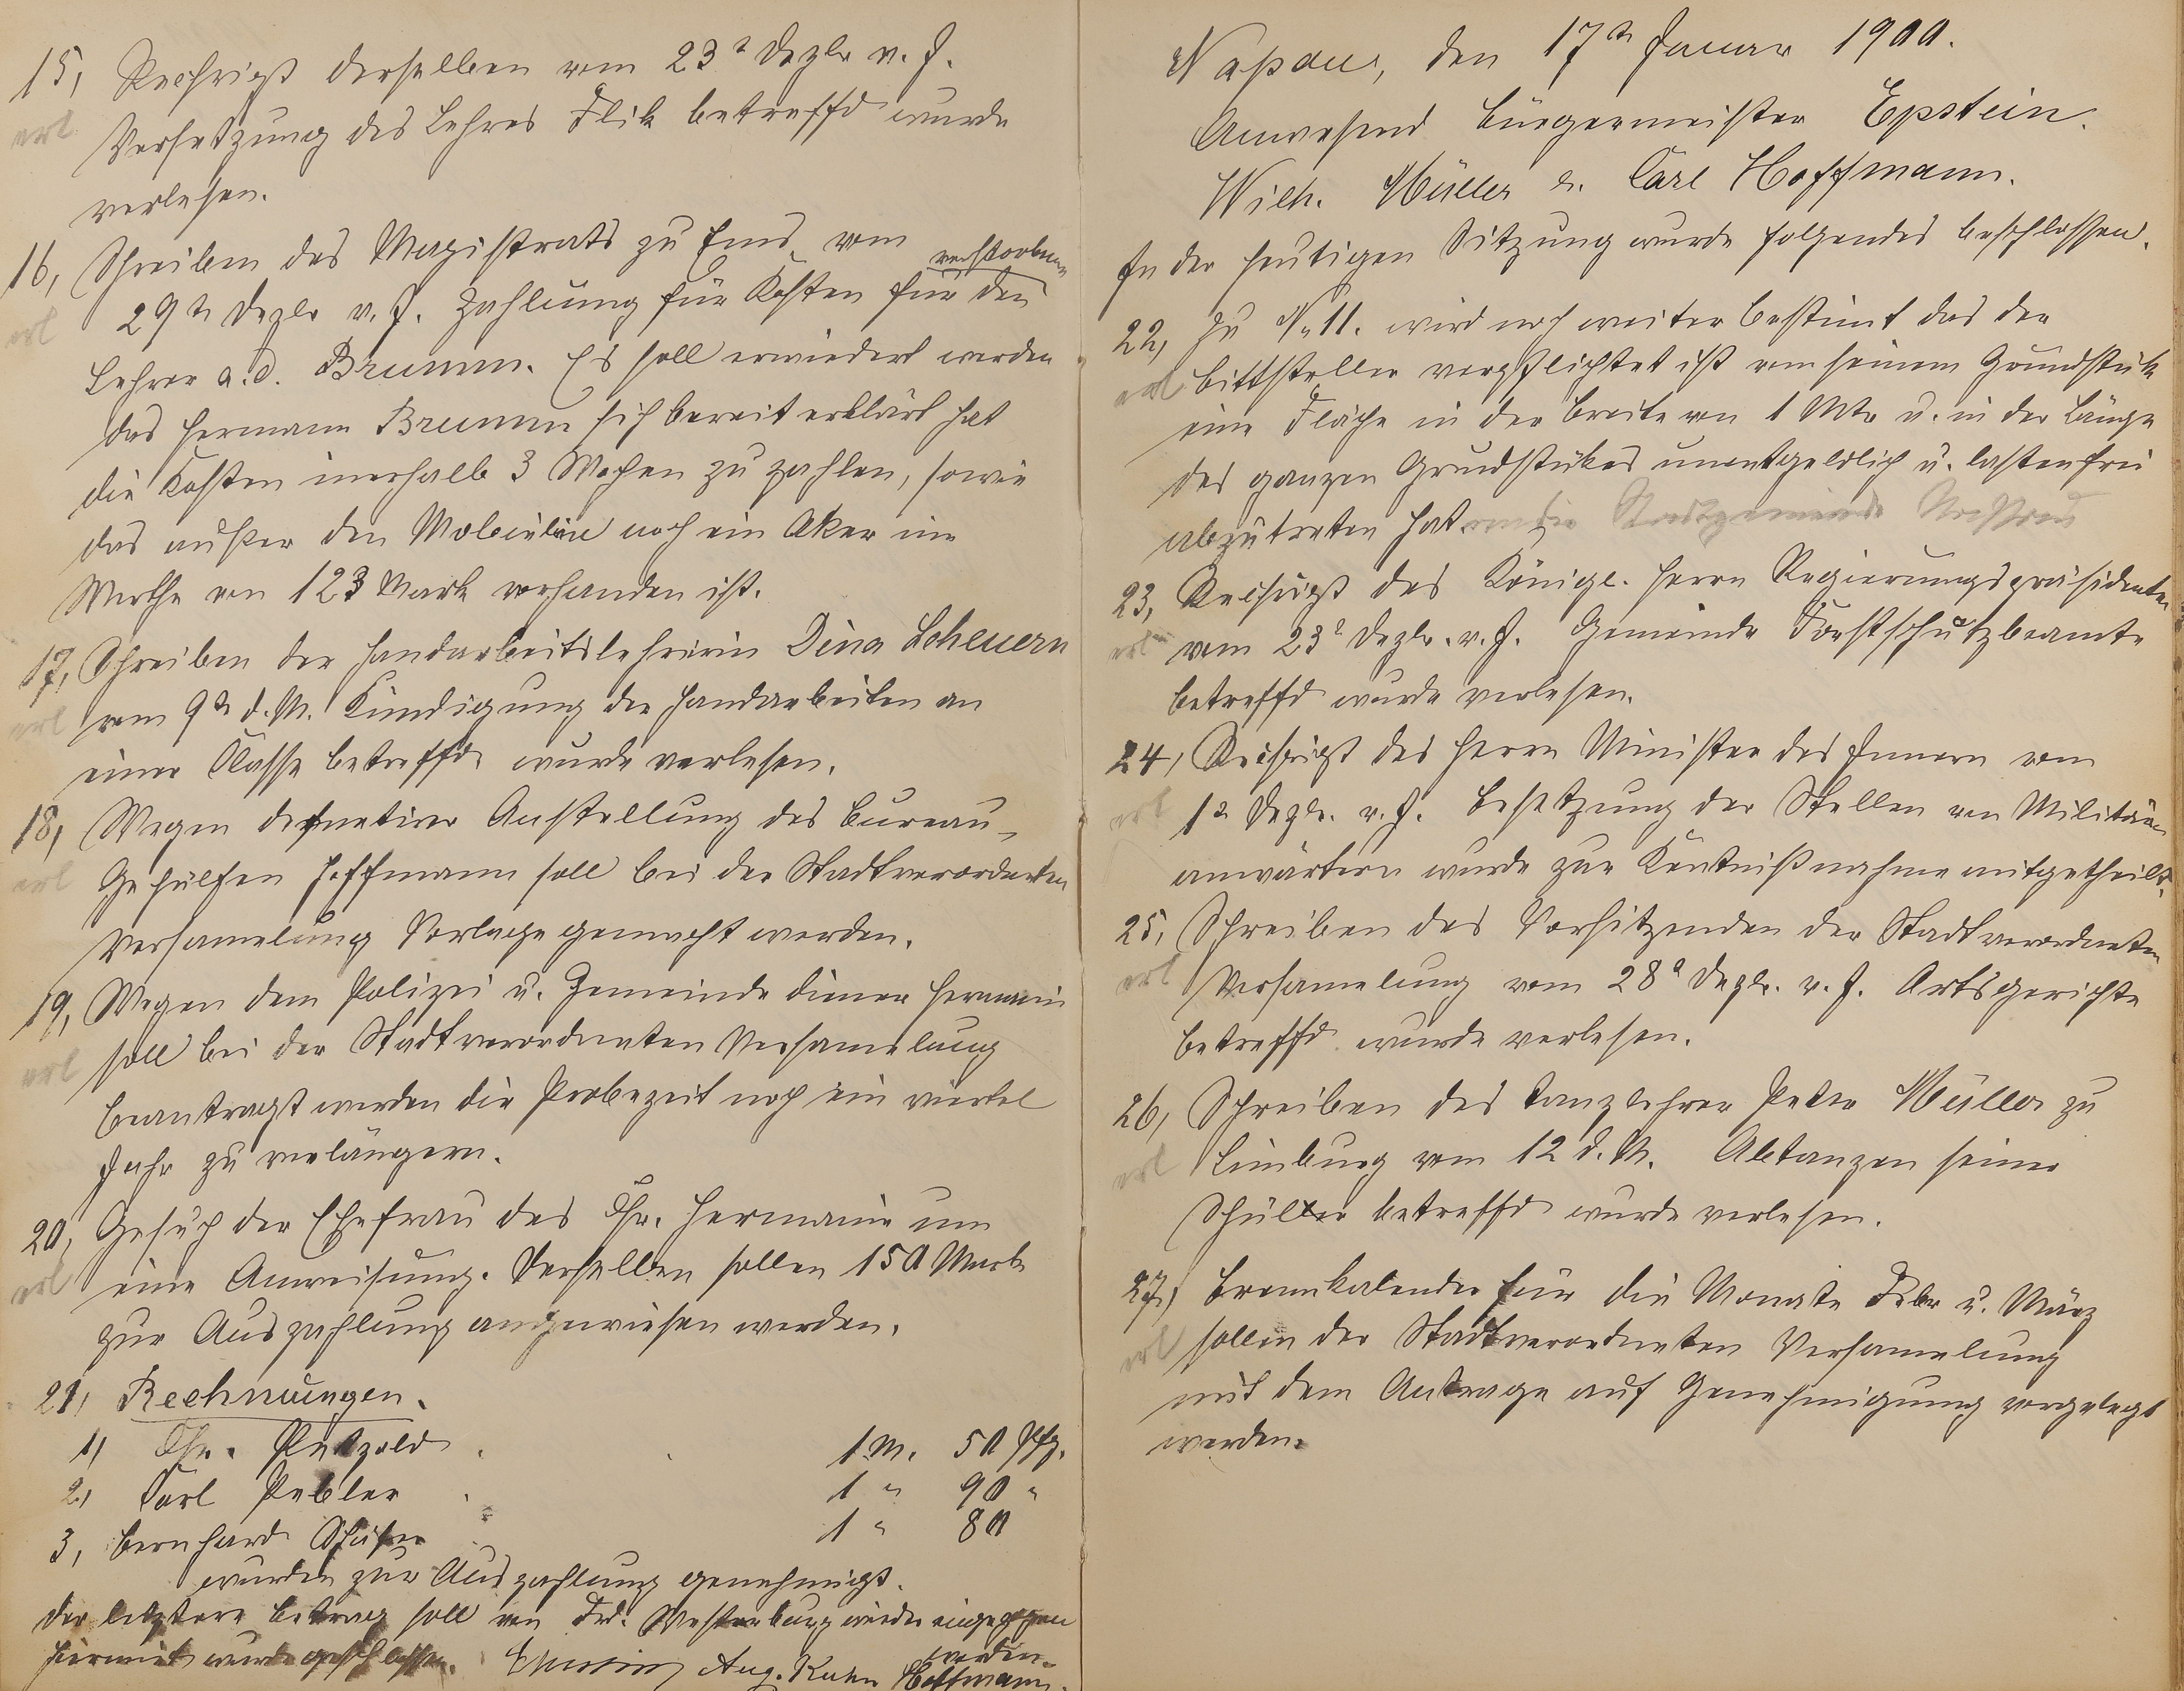 15, Reskript derselben vom 23t Dezbr v. J.
erl Versetzung des Lehres Flick betreffd wurde
verlesen.
16, Schreiben des Magistrats zu Ems vom
verstorbenen
erl 29t Dezbr v. J. Zahlung für Kosten für den
Lehrer a. D. Brumm. Es soll erwiedert werden
das Hermann Brumm sich bereit erklärt hat
die Kosten inerhalb 3 Wochen zu zahlen, sowie
das außer den Mobeilien noch ein Aker im
Werthe von 123 Mark vorhanden ist.
17, Schreiben der Handarbeitslehrerin Dina Scheuern
erl vom 9t d. M. Kündigung der Handarbeiten an
einer Klasse betreffd. wurde verlesen.
18, Wegen definetiver Anstellung des Bureau-
erl Gehülfen Hoffmann soll bei der Stadtverordneten
Versamelung Vorlage gemacht werden.
19, Wegen dem Polizei u. Gemeinde diener Hermani
erl soll bei der Stadtverordneten Versamelung
beantragt werden die Probezeit noch ein viertel
Jahr zu verlängern.
20, Gesuch der Ehefrau des Chr. Hermani um
erl eine Anweisung. Derselben sollen 150 Mark
zur Auszahlung angewiesen werden.
21, Rechnungen.
1, Chr. Petzold 1 M. 50 Pfg.
2, Carl Pebler 1 " 90 "
3, Bernhard Schäfer 1 " 80
wurden zur Auszahlung genehmigt.
der letztere Betrag soll von Frd. Westerburg wieder eingezogen
werden.
Hiermit wurde geschlossen. Epstein Aug. Kuhn Hoffmann.
Naßau, den 17t Januar 1900.
Anwesend Bürgermeister Epstein.
Wilh. Müller u. Carl Hoffmann.
In der heutigen Sitzung wurde folgendes beschlossen.
22, Zu N. 11. wird noch weiter bestimt das der
erl Bittsteller verpflichtet ist von seinem Grundstük
eine Fläche in der Breite von 1 Mtr u. in der Länge
des ganzen Grundstükes unentgeldlich u. lastenfrei
abzutreten hat an die Stadtgemeinde Nassau
23, Reskript des Königl. Herrn Regierungspräsidenten
erl vom 23t Dezbr. v. J. Gemeinde Forstschutzbeamte
betreffd wurde verlesen.
24, Reskript des Herrn Minister des Innern vom
erl 1t Dezbr. v. J. Besetzung der Stellen von Militär-
anwärtern wurde zur Kentnißnahme mitgetheilt.
25, Schreiben des Vorsitzenden der Stadtverordneten
erl Versamelung vom 28t Dezbr. v. J. Ortsgerichte
betreffd. wurde verlesen.
26, Schreiben des Tanzlehrer Peter Müller zu
erl Limburg vom 12 d. M. Abtanzen seiner
Schüller betreffd wurde verlesen.
27, Brennkalender für die Monate Febr u. März
erl soll in der Stadtverordneten Versamelung
mit dem Antrage auf Genehmigung vorgelegt
werden.